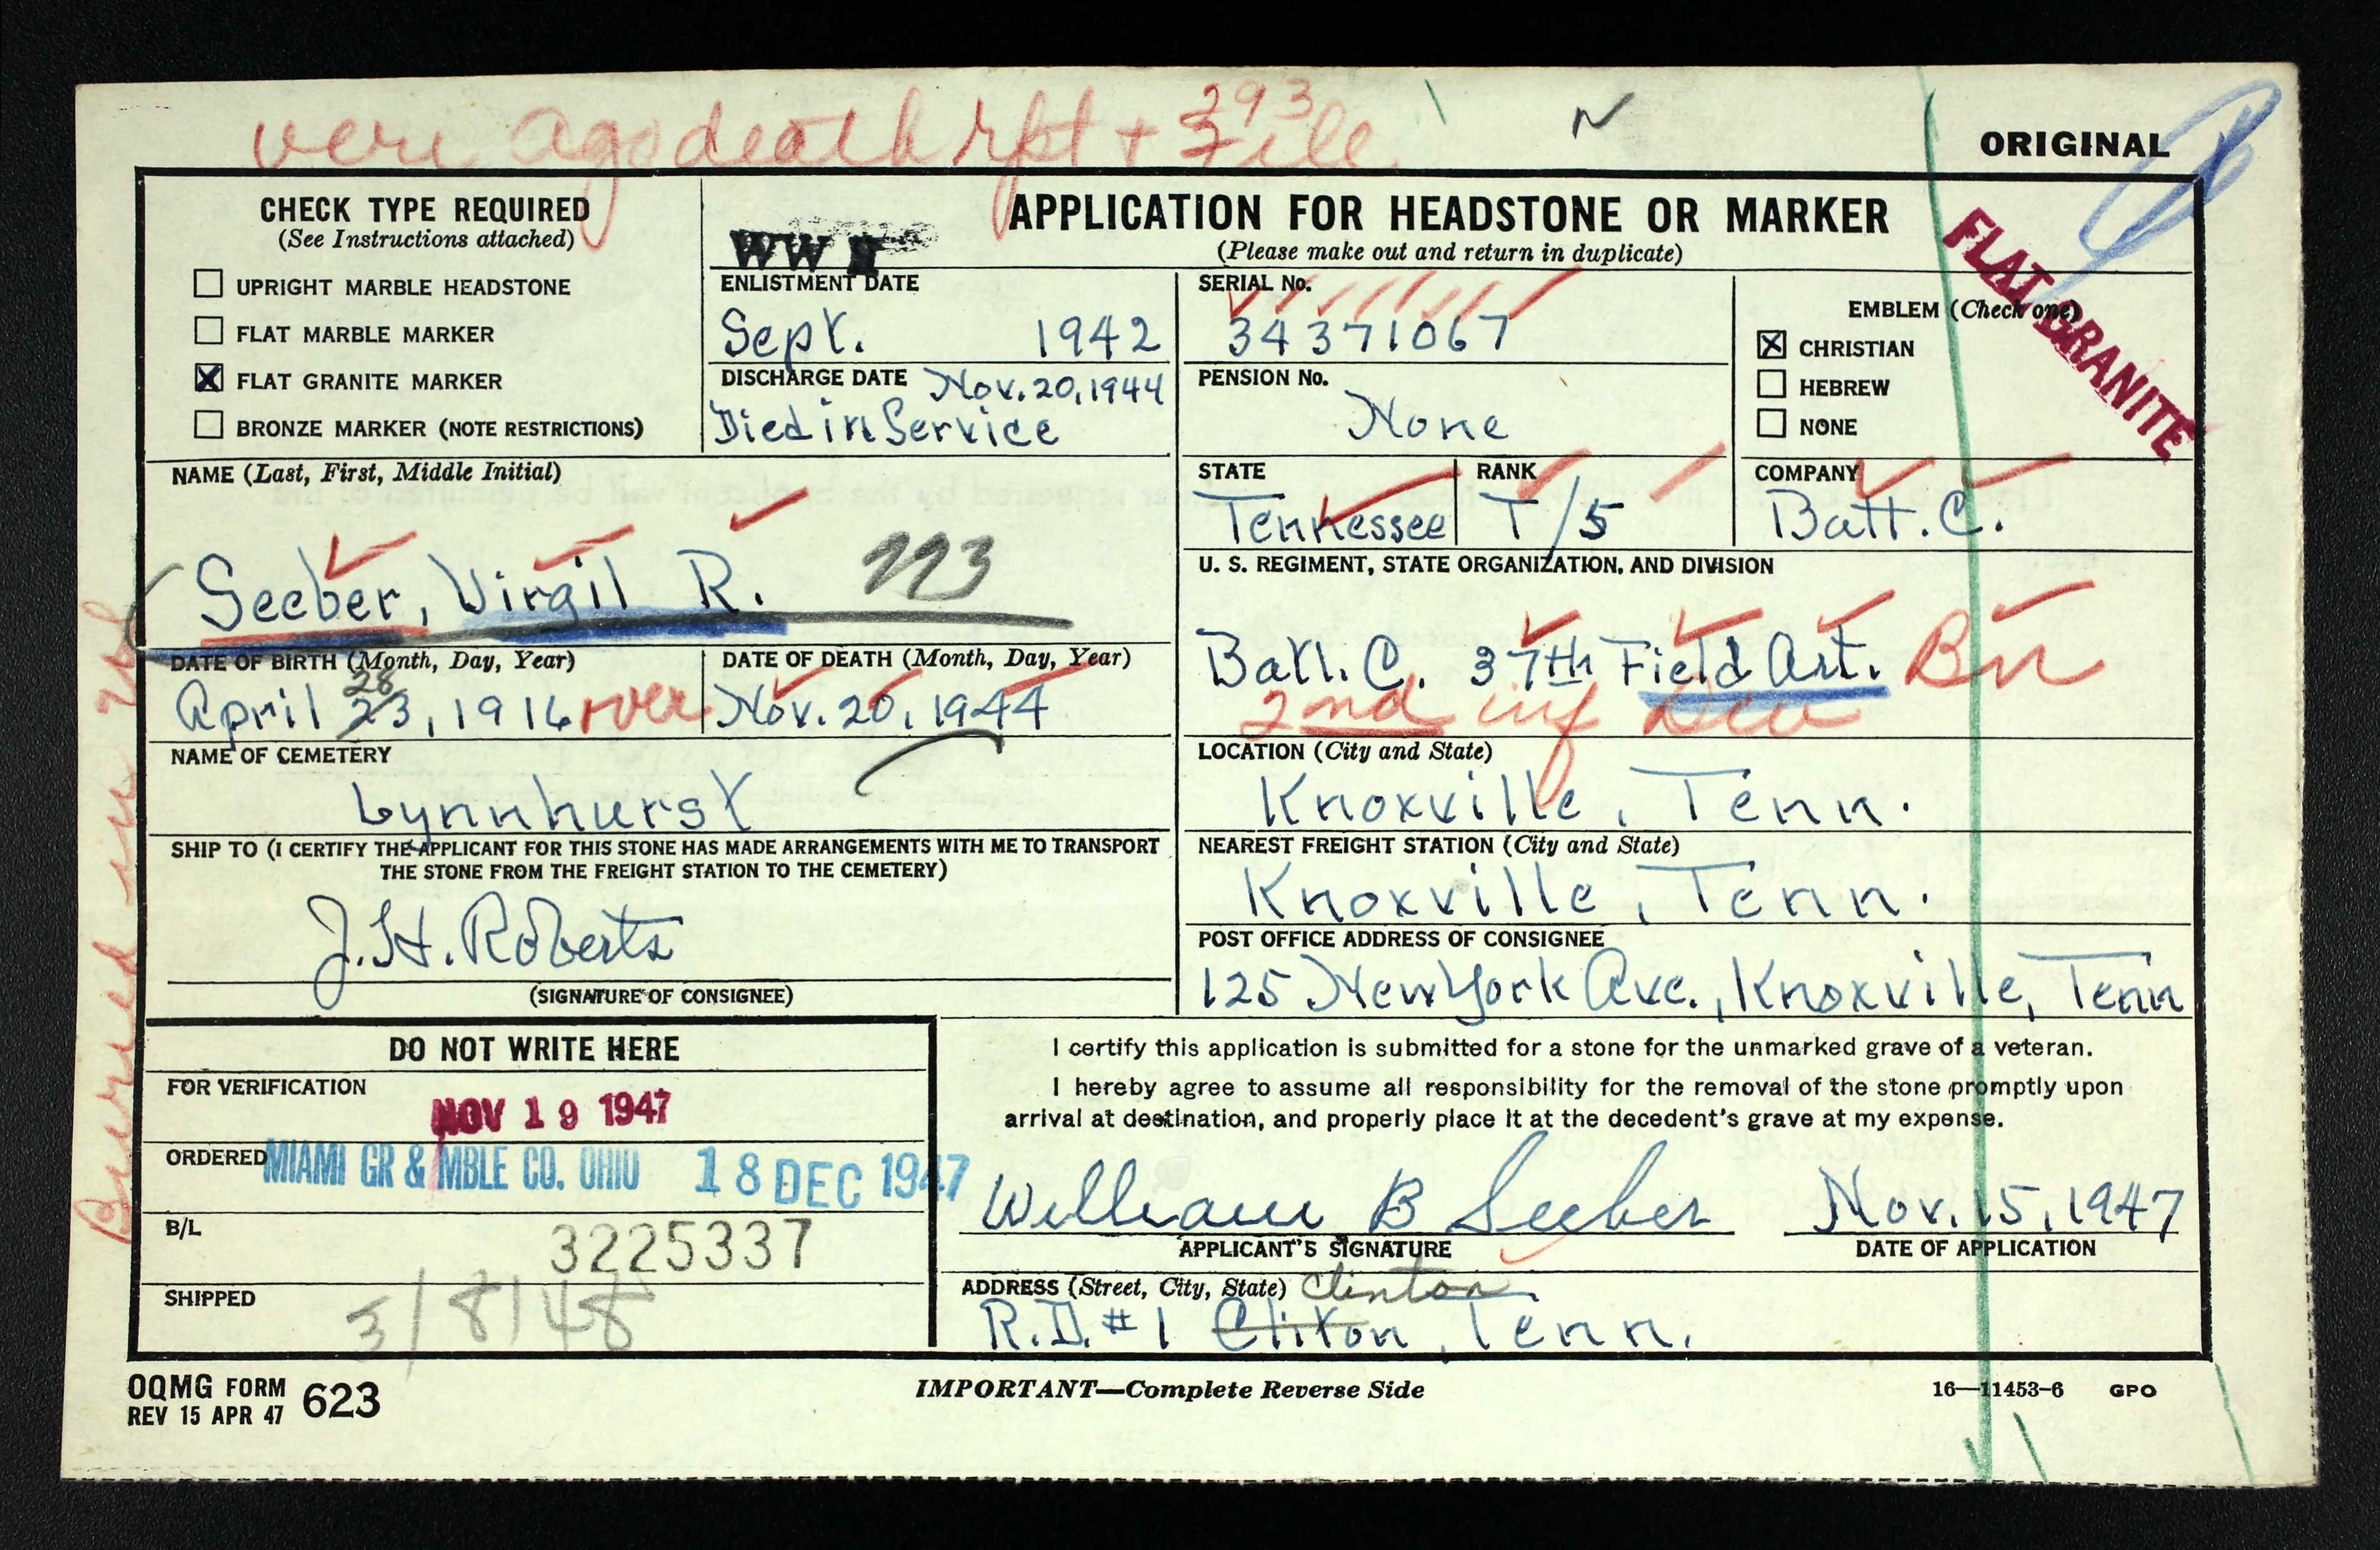 veri ago death rpt + 293 File
N
ORIGINAL
CHECK TYPE REQUIRED
(See Instructions attached)
UPRIGHT MARBLE HEADSTONE
FLAT MARBLE MARKER
FLAT GRANITE MARKER
BRONZE MARKER (NOTE RESTRICTIONS)
WW II
APPLICATION FOR HEADSTONE OR MARKER
(Please make out and return in duplicate)
ENLISTMENT DATE
Sept. 1942
DISCHARGE DATE Nov. 20, 1944
Died in Service
SERIAL No.
34371067
PENSION No.
None
EMBLEM (Check one)
CHRISTIAN
HEBREW
NONE
FLAT GRANITE
NAME (Last, First, Middle Initial)
Seeber, Virgil R.
STATE
Tennessee
RANK
T/5
COMPANY
Batt. C.
U. S. REGIMENT, STATE ORGANIZATION, AND DIVISION
Batt. C. 37th Field Art. Bn
2nd inf Div
DATE OF BIRTH (Month, Day, Year)
28
April 23, 1916 over
DATE OF DEATH (Month, Day, Year)
Nov. 20, 1944
NAME OF CEMETERY
Lynnhurst
LOCATION (City and State)
Knoxville, Tenn.
SHIP TO (I CERTIFY THE APPLICANT FOR THIS STONE HAS MADE ARRANGEMENTS WITH ME TO TRANSPORT
THE STONE FROM THE FREIGHT STATION TO THE CEMETERY)
J. H. Roberts
(SIGNATURE OF CONSIGNEE)
NEAREST FREIGHT STATION (City and State)
Knoxville, Tenn.
POST OFFICE ADDRESS OF CONSIGNEE
125 New York Ave., Knoxville, Tenn
Buried in
DO NOT WRITE HERE
FOR VERIFICATION
NOV 19 1947
ORDERED MIAMI GR & MBLE CO. OHIO 18 DEC 1947
B/L
3225337
SHIPPED
3/8/48
I certify this application is submitted for a stone for the unmarked grave of a veteran.
I hereby agree to assume all responsibility for the removal of the stone promptly upon
arrival at destination, and properly place it at the decedent's grave at my expense.
William B Seeber Nov. 15, 1947
APPLICANT'S SIGNATURE DATE OF APPLICATION
ADDRESS (Street, City, State) Clinton
R.D. #1 Cliton, Tenn.
OQMG FORM 623
REV 15 APR 47
IMPORTANT—Complete Reverse Side
16—11453-6 GPO